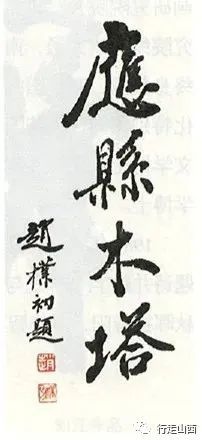 應縣木塔
趙樸初題
行走山西